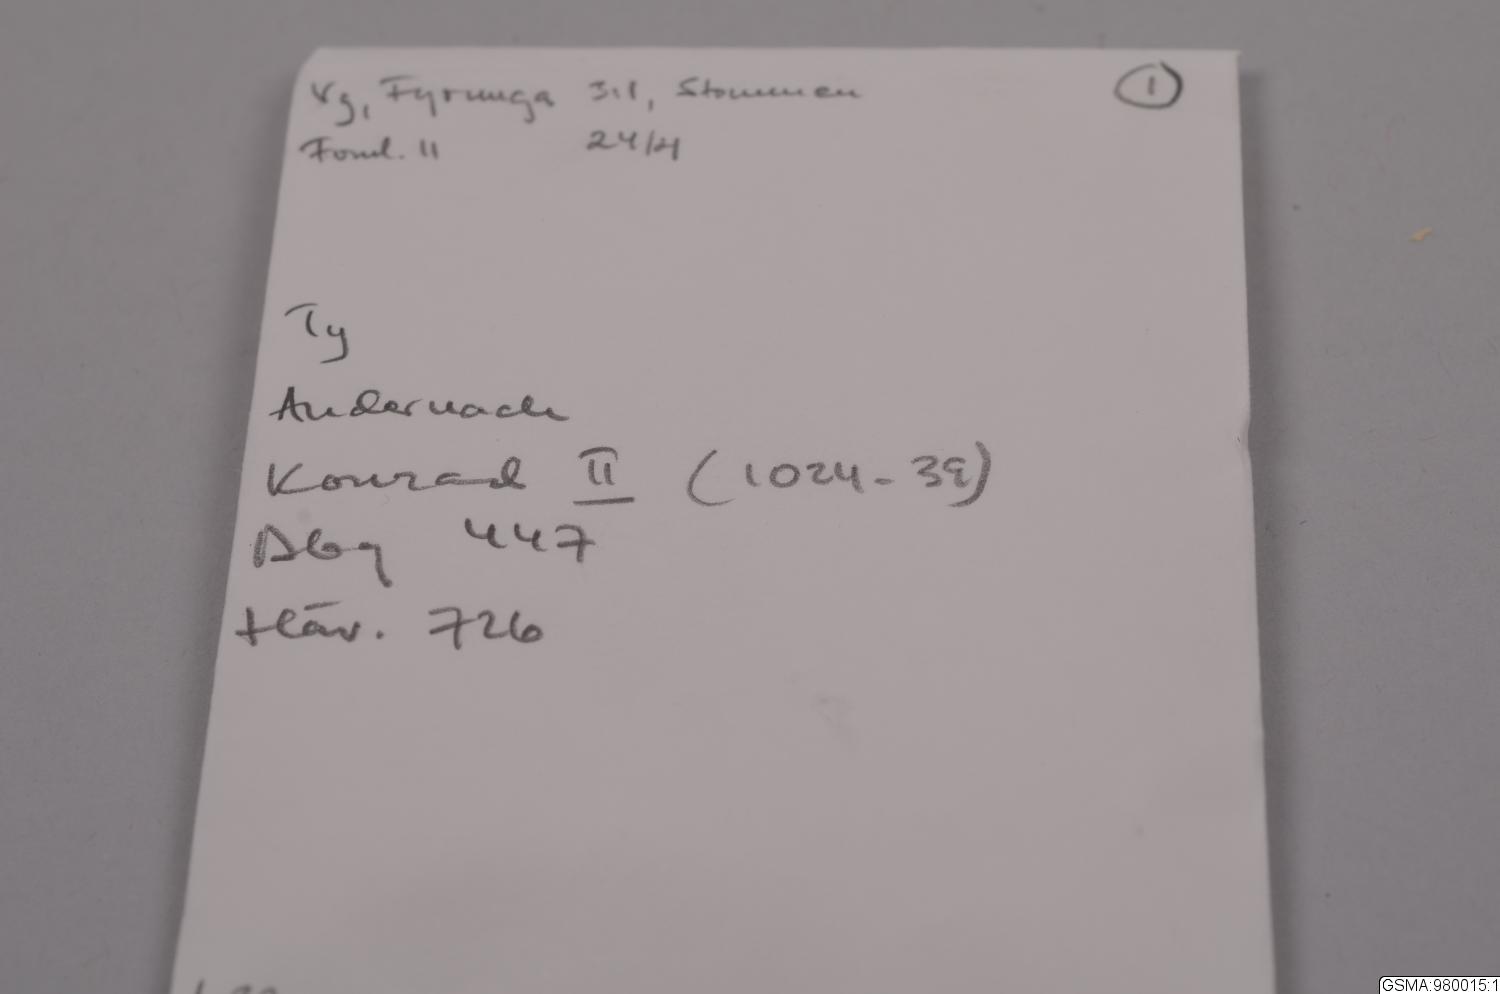 Vg, Fyrunga 3:1, Stommen ①
Fond. 11 24/4
Ty
Andernach
Konrad II (1024-39)
Dbg 447
Häv. 726
GSMA:980015:1